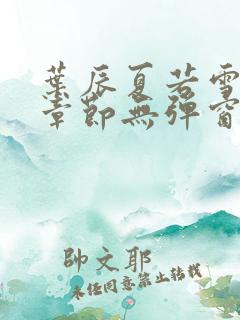 葉辰夏若雪
章節無彈窗
帥文耶
未經同意禁止轉載